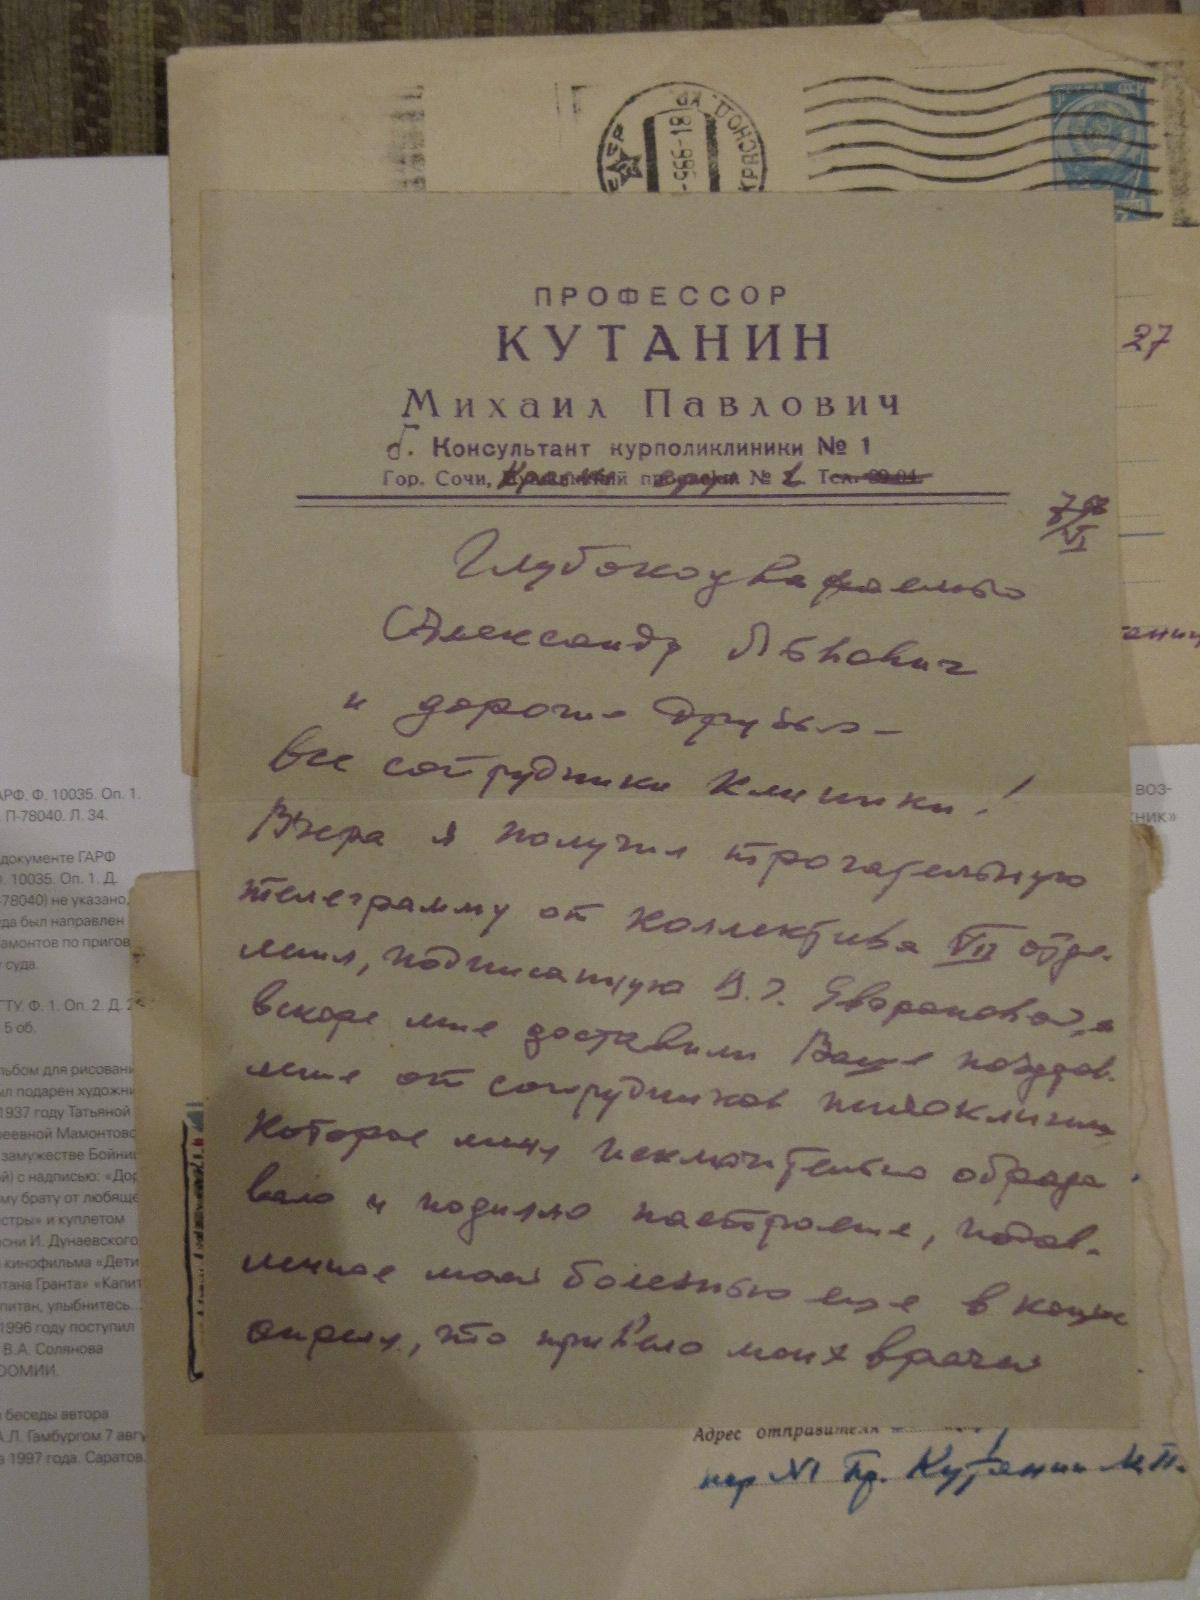 ПРОФЕССОР
КУТАНИН
Михаил Павлович
б. Консультант курполиклиники № 1
Гор. Сочи, № 1. Тел.
27
Глубокоуважаемый
Александр Львович
и дорогие друзья –
все сотрудники клиники!
Вчера я получил трогательную
телеграмму от коллектива VII отде-
ления, подписанную а
вскоре мне доставили Ваше поздрав-
ление от сотрудников
которое меня исключительно обрадо
вало и подняло настроение, подав-
ленное моей болезнью еще в конце
апреля, что привело моих врачей
Адрес отправителя
пер №1 Пр. Кутанин М.П.
АРФ. Ф. 10035. Оп. 1.
П-78040. Л. 34.
документе ГАРФ
. 10035. Оп. 1. Д.
-78040) не указано,
да был направлен
амонтов по пригов
суда.
ГТУ. Ф. 1. Оп. 2. Д.
5 об.
льбом для рисовани
ыл подарен художни
1937 году Татьяной
реевной Мамонтово
замужестве Бойниц
й) с надписью: «Дор
му брату от любяще
стры» и куплетом
сни И. Дунаевского
кинофильма «Дети
итана Гранта» «Капит
питан, улыбнитесь...
1996 году поступил
В.А. Солянова
ООМИИ.
беседы автора
А.Л. Гамбургом 7 авгу
а 1997 года. Саратов.
ВОЗ-
НИК»